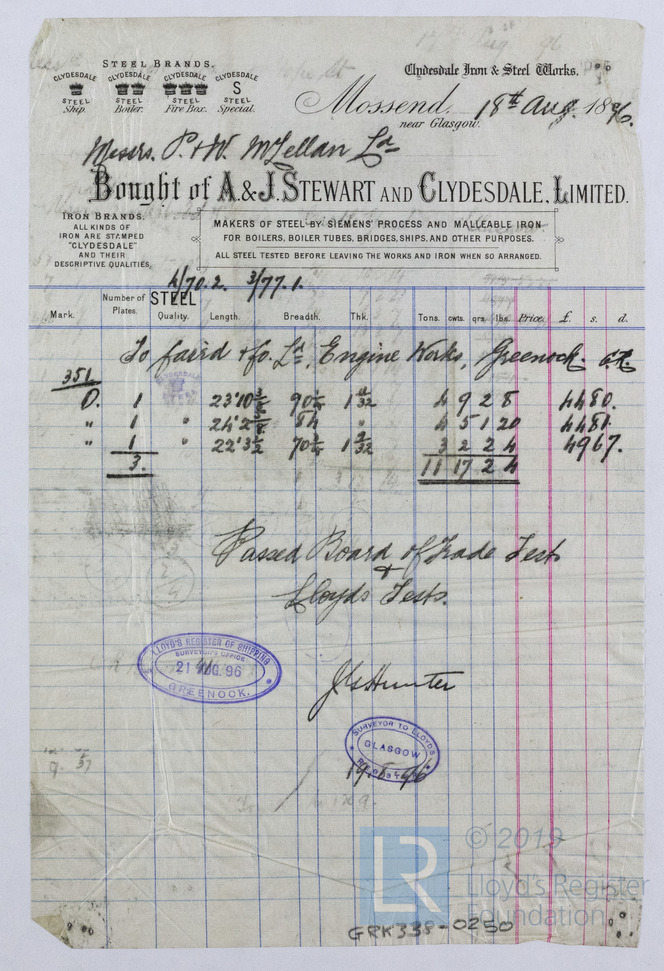 STEEL BRANDS.
CLYDESDALE CLYDESDALE CLYDESDALE CLYDESDALE
S
STEEL STEEL STEEL STEEL
Ship. Boiler. Fire Box. Special.
Clydesdale Iron & Steel Works.
Mossend, 18th Aug. 1896.
near Glasgow.
Messrs. P. & W. McLellan Ld
Bought of A. & J. STEWART AND CLYDESDALE, LIMITED.
IRON BRANDS.
ALL KINDS OF
IRON ARE STAMPED
"CLYDESDALE"
AND THEIR
DESCRIPTIVE QUALITIES,
MAKERS OF STEEL BY SIEMENS' PROCESS AND MALLEABLE IRON
FOR BOILERS, BOILER TUBES, BRIDGES, SHIPS, AND OTHER PURPOSES.
ALL STEEL TESTED BEFORE LEAVING THE WORKS AND IRON WHEN SO ARRANGED.
4/70.2. 3/77.1.
Mark. Number of Plates. STEEL Quality. Length. Breadth. Thk. Tons. cwts. qrs. lbs. Price. £. s. d.
To Caird & Co. Ld, Engine Works, Greenock.
351
D. 1 4 9 2 8 4480.
" 1 " 84 " 4 5 1 20 4481.
" 1 " 3 2 2 4 4967.
3. 11 17 2 4
Passed Board of Trade Tests
&
Lloyds Tests.
LLOYD'S REGISTER OF SHIPPING
SURVEYOR'S OFFICE
21 AUG. 96
GREENOCK.
Jas Hunter
SURVEYOR TO LLOYDS
GLASGOW
19.8.96
9. 37
LR
© 2019
Lloyd's Register
Foundation
GRK338-0250